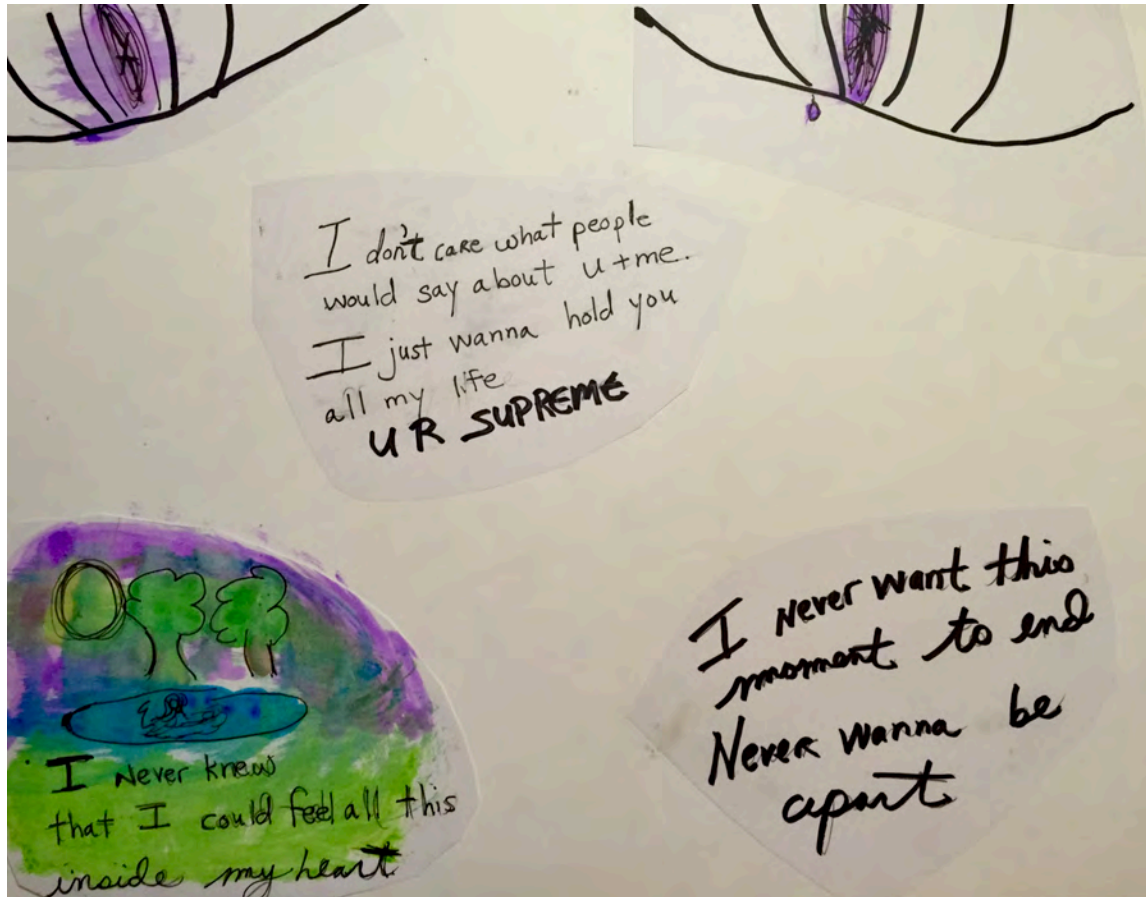 I don't care what people
would say about u + me.
I just wanna hold you
all my life
U R SUPREME
I never knew
that I could feel all this
inside my heart
I never want this
moment to end
Never wanna be
apart